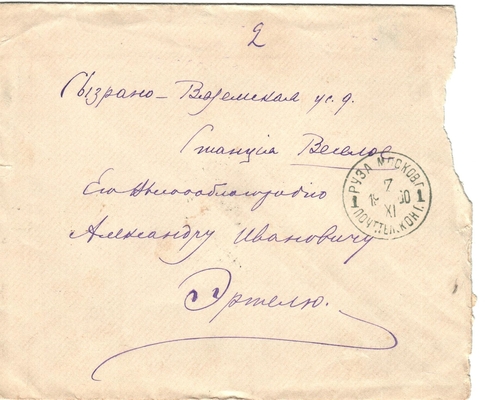 2
Сызрано-Вяземская ж. д.
Станція Веселое
Его Высокоблагородію
Александру Ивановичу
Эртелю.
РУЗА МОСКОВ. Г.
1 7 1
19 00
XI
ПОЧТ. ТЕЛ. КОН.